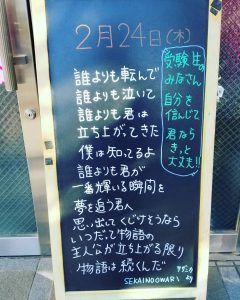 2月24日(木)
受験生の
みなさん
自分を
信んじて
君なら
きっと
大丈夫!!
誰よりも転んで
誰よりも泣いて
誰よりも君は
立ち上がってきた
僕は知ってるよ
誰よりも君が
一番輝いる瞬間を
夢を追う君へ
思い出してくじけそうなら
いつだって物語の
主人公が立ち上がる限り
物語は続くんだ
SEKAINOOWARI
より